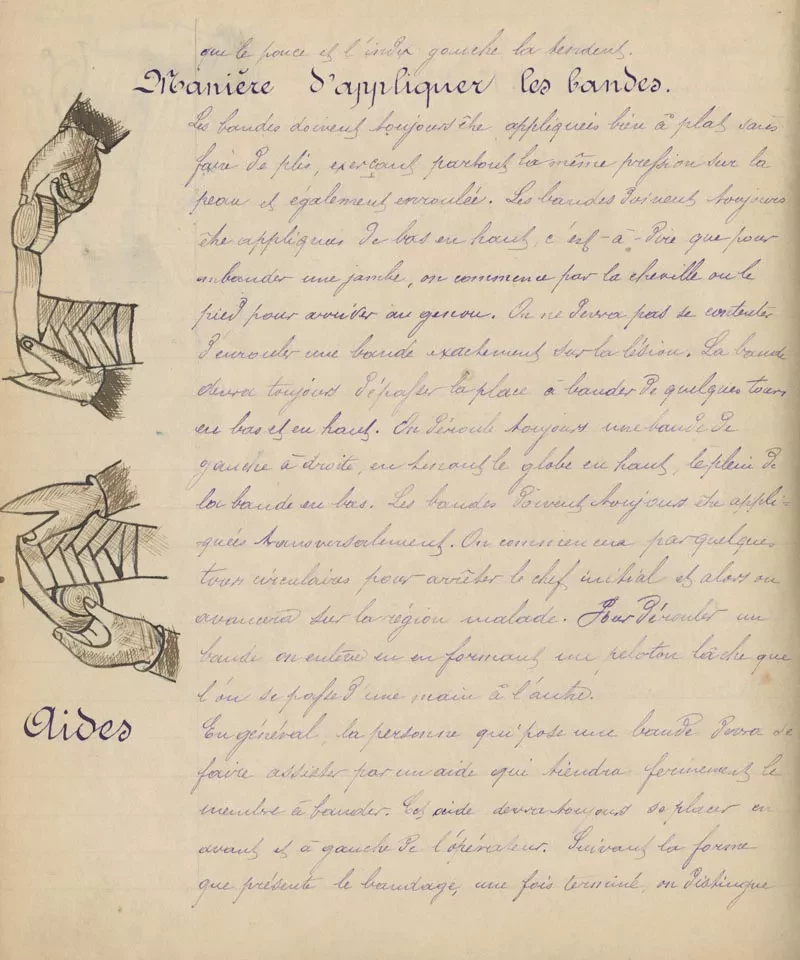 que le pouce et l'index gauche la tendent.
Manière d'appliquer les bandes.
Les bandes doivent toujours être appliquées bien à plat sans
faire de plis, exerçant partout la même pression sur la
peau et également enroulée. Les bandes doivent toujours
être appliquées de bas en haut, c'est-à-dire que pour
bander une jambe, on commence par la cheville ou le
pied pour arriver au genou. On ne devra pas se contenter
d'enrouler une bande exactement sur la lésion. La bande
devra toujours dépasser la place à bander de quelques tours
en bas et en haut. On déroule toujours une bande de
gauche à droite, en tenant le globe en haut, le plein de
la bande en bas. Les bandes doivent toujours être appli-
-quées transversalement. On commencera par quelques
tours circulaires pour arrêter le chef initial et alors on
avancera sur la région malade. Pour dérouler un
bande on enlève en en formant une peloton lâche que
l'on se passe d'une main à l'autre.
Aides
En général, la personne qui pose une bande devra se
faire assister par un aide qui tiendra fermement le
membre à bander. Cet aide devra toujours se placer en
avant et à gauche de l'opérateur. Suivant la forme
que présente le bandage, une fois terminé, on distingue